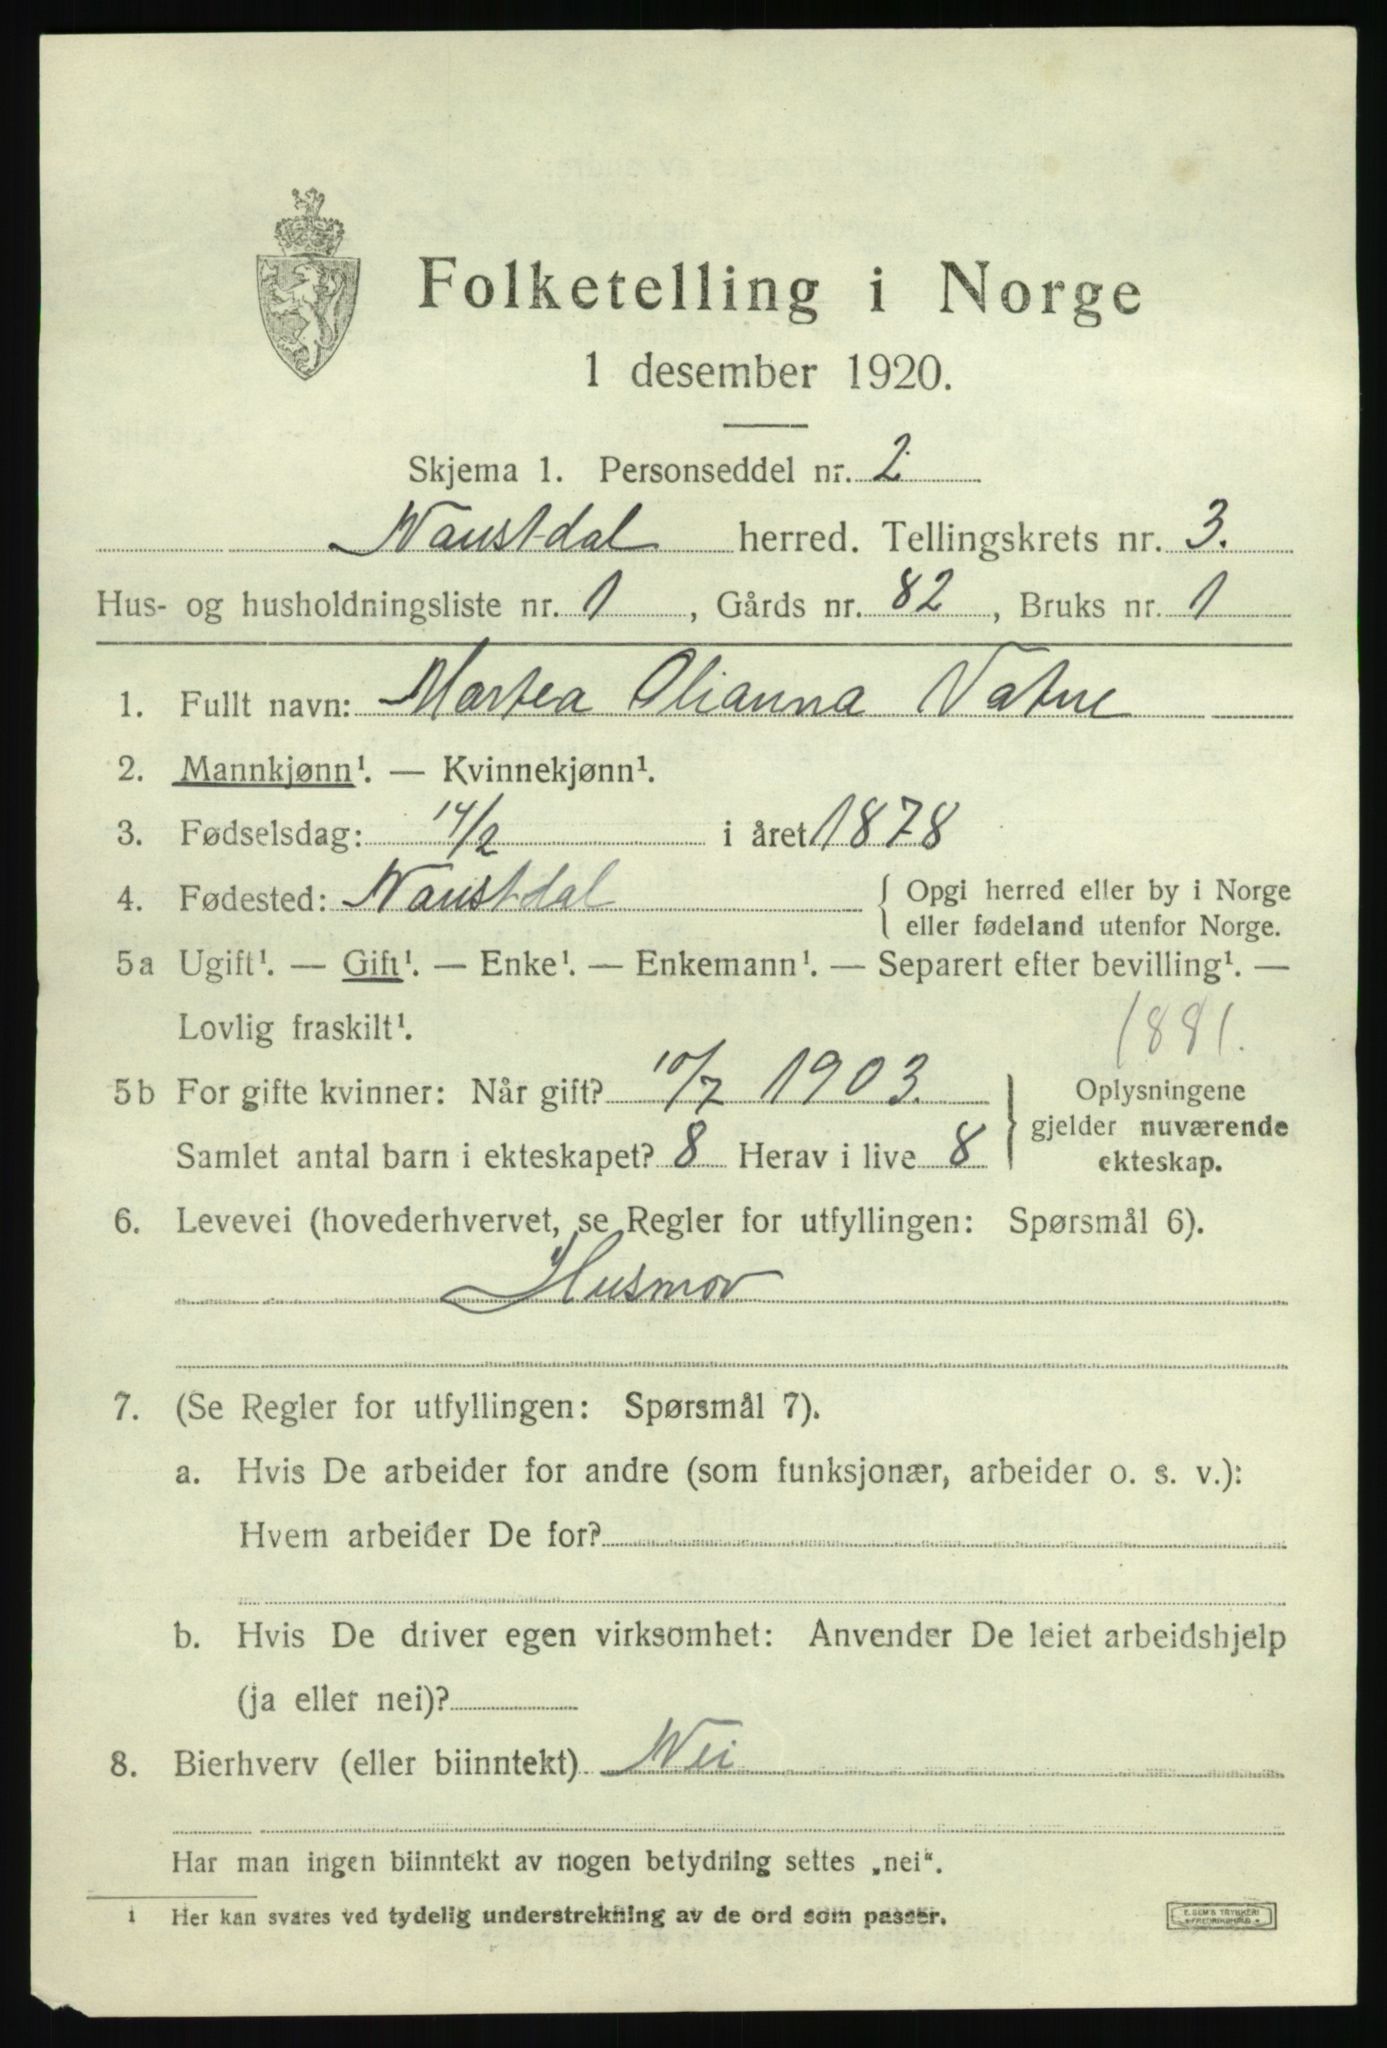 Folketelling i Norge
1 desember 1920.
Skjema 1. Personseddel nr. 2
Naustdal herred. Tellingskrets nr. 3.
Hus- og husholdningsliste nr. 1, Gårds nr. 82, Bruks nr. 1
1. Fullt navn: Martea Olianna Vatne
2. Mannkjønn¹. — Kvinnekjønn¹.
3. Fødselsdag: 14/2 i året 1878
4. Fødested: Naustdal { Opgi herred eller by i Norge
eller fødeland utenfor Norge.
5a Ugift¹. — Gift¹. — Enke¹. — Enkemann¹. — Separert efter bevilling¹. —
Lovlig fraskilt¹.
1881.
5b For gifte kvinner: Når gift? 10/7 1903. } Oplysningene
gjelder nuværende
Samlet antal barn i ekteskapet? 8 Herav i live 8
ekteskap.
6. Levevei (hovederhvervet, se Regler for utfyllingen: Spørsmål 6).
Husmor
7. (Se Regler for utfyllingen: Spørsmål 7).
a. Hvis De arbeider for andre (som funksjonær, arbeider o. s. v.):
Hvem arbeider De for?
b. Hvis De driver egen virksomhet: Anvender De leiet arbeidshjelp
(ja eller nei)?
8. Bierhverv (eller biinntekt) Nei
Har man ingen biinntekt av nogen betydning settes „nei“.
1 Her kan svares ved tydelig understrekning av de ord som passer.
E. SEM'S TRYKKERI
FREDRIKSHALD